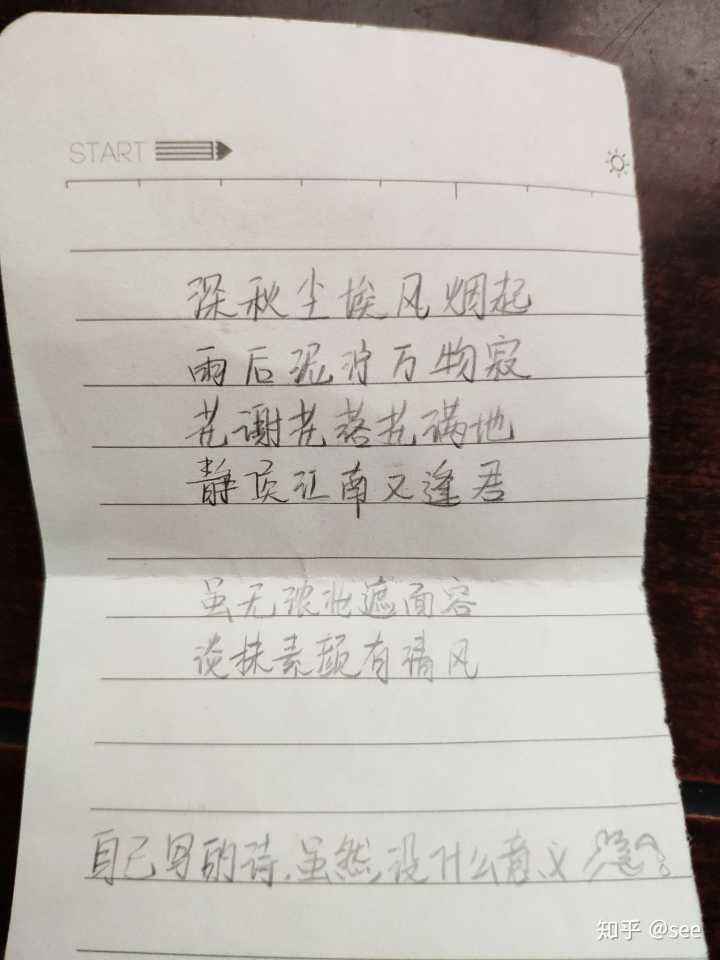 START
深秋尘埃风烟起
雨后泥泞万物寂
花谢花落花满地
静度江南又逢君
虽无浓妆遮面容
淡抹素颜有清风
自己写的诗.虽然没什么意义
知乎 @see